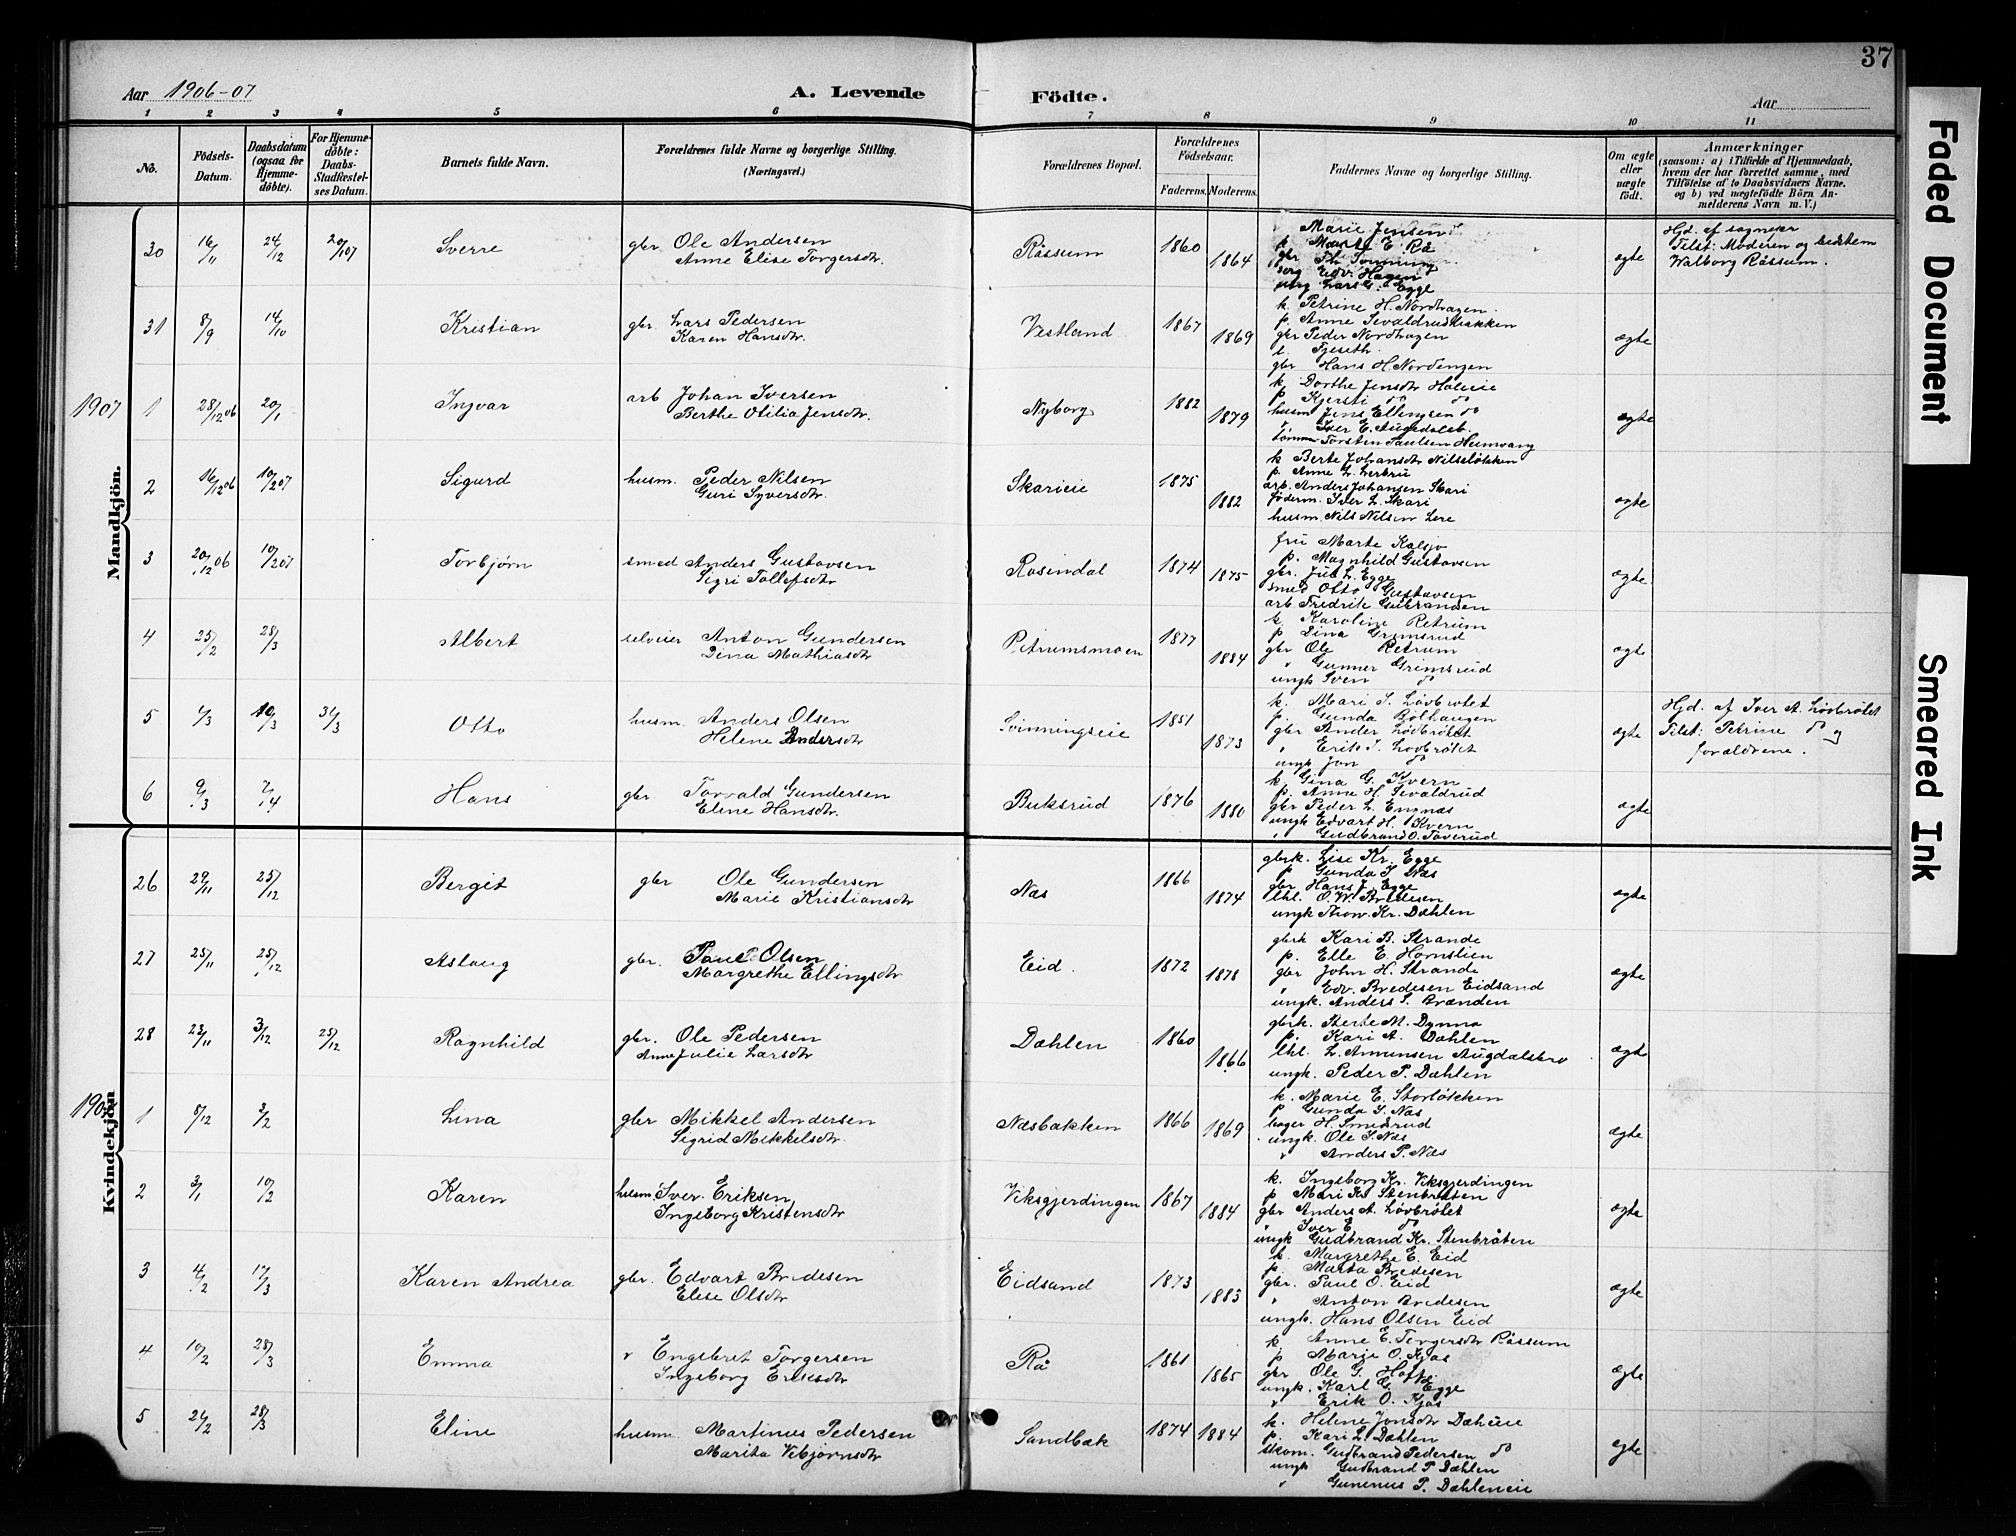 37
Aar 1906-07
A. Levende Födte.
Aar
1 2 3 4 5 6 7 8 9 10 11
No.
Födsels-Datum.
Daabsdatum (ogsaa for Hjemme-døbte).
For Hjemme-døbte: Daabs-Stadfæstel-ses Datum.
Barnets fulde Navn.
Forældrenes fulde Navne og borgerlige Stilling.
(Næringsvei.)
Forældrenes Bopæl.
Forældrenes Födselsaar.
Faderens. Moderens.
Faddernes Navne og borgerlige Stilling.
Om ægte eller uægte födt.
Anmærkninger
(saasom: a) i Tilfælde af Hjemmedaab, hvem der har forrettet samme, med Tilföielse af to Daabsvidners Navne, og b) ved uægtefödte Börn Anmelderens Navn m. V.)
Mandkjön.
30 16/11 24/12 20/1 07 Sverre gbr Ole Andersen
Anne Elise Torgersdtr. Råssum 1860 1864 ægte
Marie Jensen
p. Marte E. Rå
gbr Th
ung Edv. Hagen
ung Lars G. Egge
Hjd. af sogneper
Tilst: Moderen og
Walborg Råssum.
31 8/9 14/10 Kristian gbr. Lars Pedersen
Karen Hansdtr. Vestland 1867 1869 ægte
k. Petrine H. Nordhagen.
p. Anne Sevaldrudbakken
gbr Peder Nordhagen
l. Fjeseth.
gbr Hans H. Nordengen
1907 1 28/12 06 20/1 Ingvar arb Johan Iversen
Berthe Otilia Jensdtr. Nyborg 1882 1879 ægte
k. Dorthe Jensdtr Haleie
p Kjersti do do
husm Jens Ellingsen do
" Iver E. Augedalsb.
tømm Torsten Paulsen Heimvang
2 16/12 06 10/2 07 Sigurd husm. Peder Nilsen
Guri Syversdtr. Skarieie 1875 1882 ægte
k Berte Johansdtr Nilseløkken
p. Anne L. Lerbru
arb. Anders Johansen Skari
føderm. Iver L. Skari
husm. Nils Nilsen Lere
3 20/12 06 10/2 07 Torbjørn smed Anders Gustavsen
Sigri Tollefsdtr Rosendal 1874 1875 ægte
fru Marte Kalsjø
p. Magnhild Gustavsen
gbr. Jul L. Egge
smed Otto Gustavsen
arb Fredrik Gubrandsen
4 25/2 28/3 Albert selveier Anton Gundersen
Dina Mathiasdtr Petrumsmoen 1877 1884 ægte
k Karoline Petrum
p Lina Grimsrud
gbr Ole Petrum
" Gunner Grimsrud
ungk Sven do
5 4/3 10/3 31/3 Otto husm. Anders Olsen
Helene Andersdtr Svinningseie 1851 1873 ægte
k. Mari I. Løvbrøtet
p. Gunda Bølhaugen
gbr Ander Løvbrøtet
" Erik I. Løvbrøtet
ungk Jon do
Hjd. af Iver A. Løvbrøtet
Tilst: Petrine do og
forældrene.
6 9/3 7/4 Hans gbr Torvald Gundersen
Eline Hansdtr. Buksrud 1876 1880 ægte
k. Gina G. Kvern
p. Anne H. Sevaldrud
gbr Peder L. Engnæs
ungk Edvart H. Kvern
" Gudbrand O. Toverud
Kvindekjön
26 29/11 25/12 Bergit gbr Ole Gundersen
Marie Kristiansdtr Næs 1866 1874 ægte
gbrk. Lise Kr. Egge
p Gunda I Næs
gbr Hans J. Egge
lhl. O. W. Bredesen
ungk Thorv. Kr. Dæhlen
27 25/11 25/12 Aslaug gbr. Paul Olsen
Margrethe Ellingsdtr Eid. 1872 1878 ægte
gbrk Kari B. Strande
p. Elle E. Hornslien
gbr John H. Strande
" Edv. Bredesen Eidsand
ungk. Anders S. Brænden
28 23/11 3/12 25/12 Ragnhild gbr. Ole Pedersen
Anne Julie Larsdtr Dæhlen 1860 1866 ægte
gbrk. Berte M. Dynna
p. Kari A. Dæhlen
lhl. L. Amunsen Augdalsbro
ungk. Peder P. Dæhlen
1907 1 8/12 3/2 Lina gbr Mikkel Andersen
Sigrid Mikkelsdtr. Næsbakken 1866 1869 ægte
k. Marie E. Storløkken
p Gunda I. Næs
bager H. Smedsrud
ungk. Ole I. Næs
" Anders P. Næs
2 3/1 10/2 Karen husm. Iver Eriksen
Ingeborg Kristensdtr Viksgjerdingen 1867 1884 ægte
k. Ingeborg Kr. Viksgjerdingen
p Mari Kr Stenbråten
gbr Anders A. Løvbrøtet
" Iver E. do
ungk Gudbrand Kr. Stenbråten
3 4/2 17/3 Karen Andrea gbr. Edvart Bredesen
Elise Olsdtr Eidsand 1873 1883 ægte
k. Margrethe E. Eid
p. Marta Bredesen
gbr. Paul O. Eid
" Anton Bredesen
ungk. Hans Olsen Eid
4 10/2 28/3 Emma " Engebret Torgersen
Ingeborg Eriksdtr Rå 1861 1865 ægte
k. Anne E. Torgersdtr Råssum
p Marie O. Kjos
gbr Ole G.
ungk. Karl G. Egge
" Erik O. Kjos
5 24/2 28/3 Eline husm. Martinus Pedersen
Marita Vebjørnsdtr Sandbæk 1874 1884 ægte
k. Helene Jonsdtr Dæhlie
p. Kari L. Dæhlen
skom. Gudbrand Pedersen do
ungk Gudbrand P Dæhlen
" Gunerius P. Dæhleneie
Faded Document
Smeared Ink